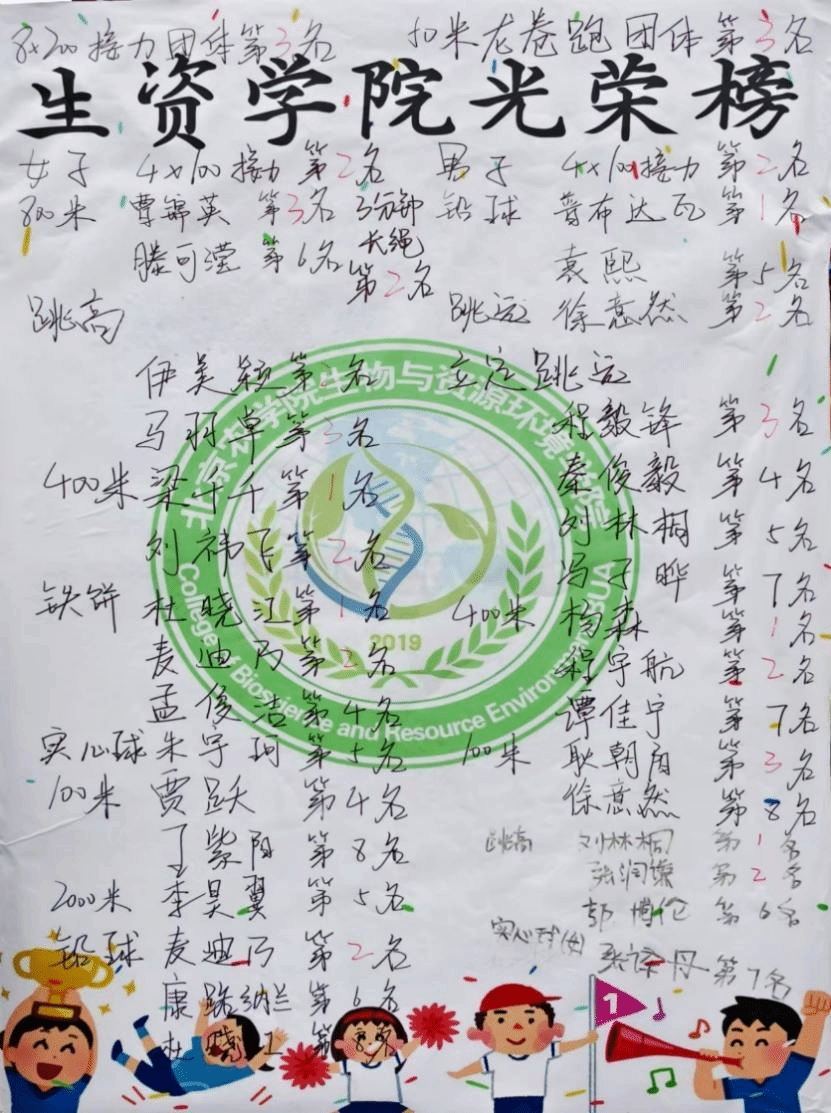 8×200接力团体第3名 50米龙卷跑团体第3名
生资学院光荣榜
女子 4×100接力 第2名 男子 4×100接力 第2名
800米 曹锦英 第3名 3分钟长绳第2名 铅球 普布达瓦 第1名
滕可滢 第6名 袁熙 第5名
跳高 跳远 徐意然 第2名
伊美颖 第2名 立定跳远
马羽卓 第3名 程毅锋 第3名
400米 梁千千 第1名 秦俊毅 第4名
刘祎飞 第2名 刘林桐 第5名
冯子晔 第7名
铁饼 杜晓江 第1名 400米 杨森 第1名
麦迪乃 第2名 程宇航 第2名
孟俊洁 第4名 谭佳宁 第7名
实心球 朱宇珂 第5名 100米 耿朝阳 第3名
100米 贾跃 第4名 徐意然 第8名
丁紫阳 第8名 跳高 刘林桐 第1名
张润 第2名
2000米 李昊翼 第5名 郭博伦 第6名
铅球 麦迪乃 第2名 实心球(女) 张 丹 第7名
康 纳兰 第6名
杜晓江 第8名
北京农学院生物与资源环境学院
College of Bioscience and Resource Environment BUA
2019
1